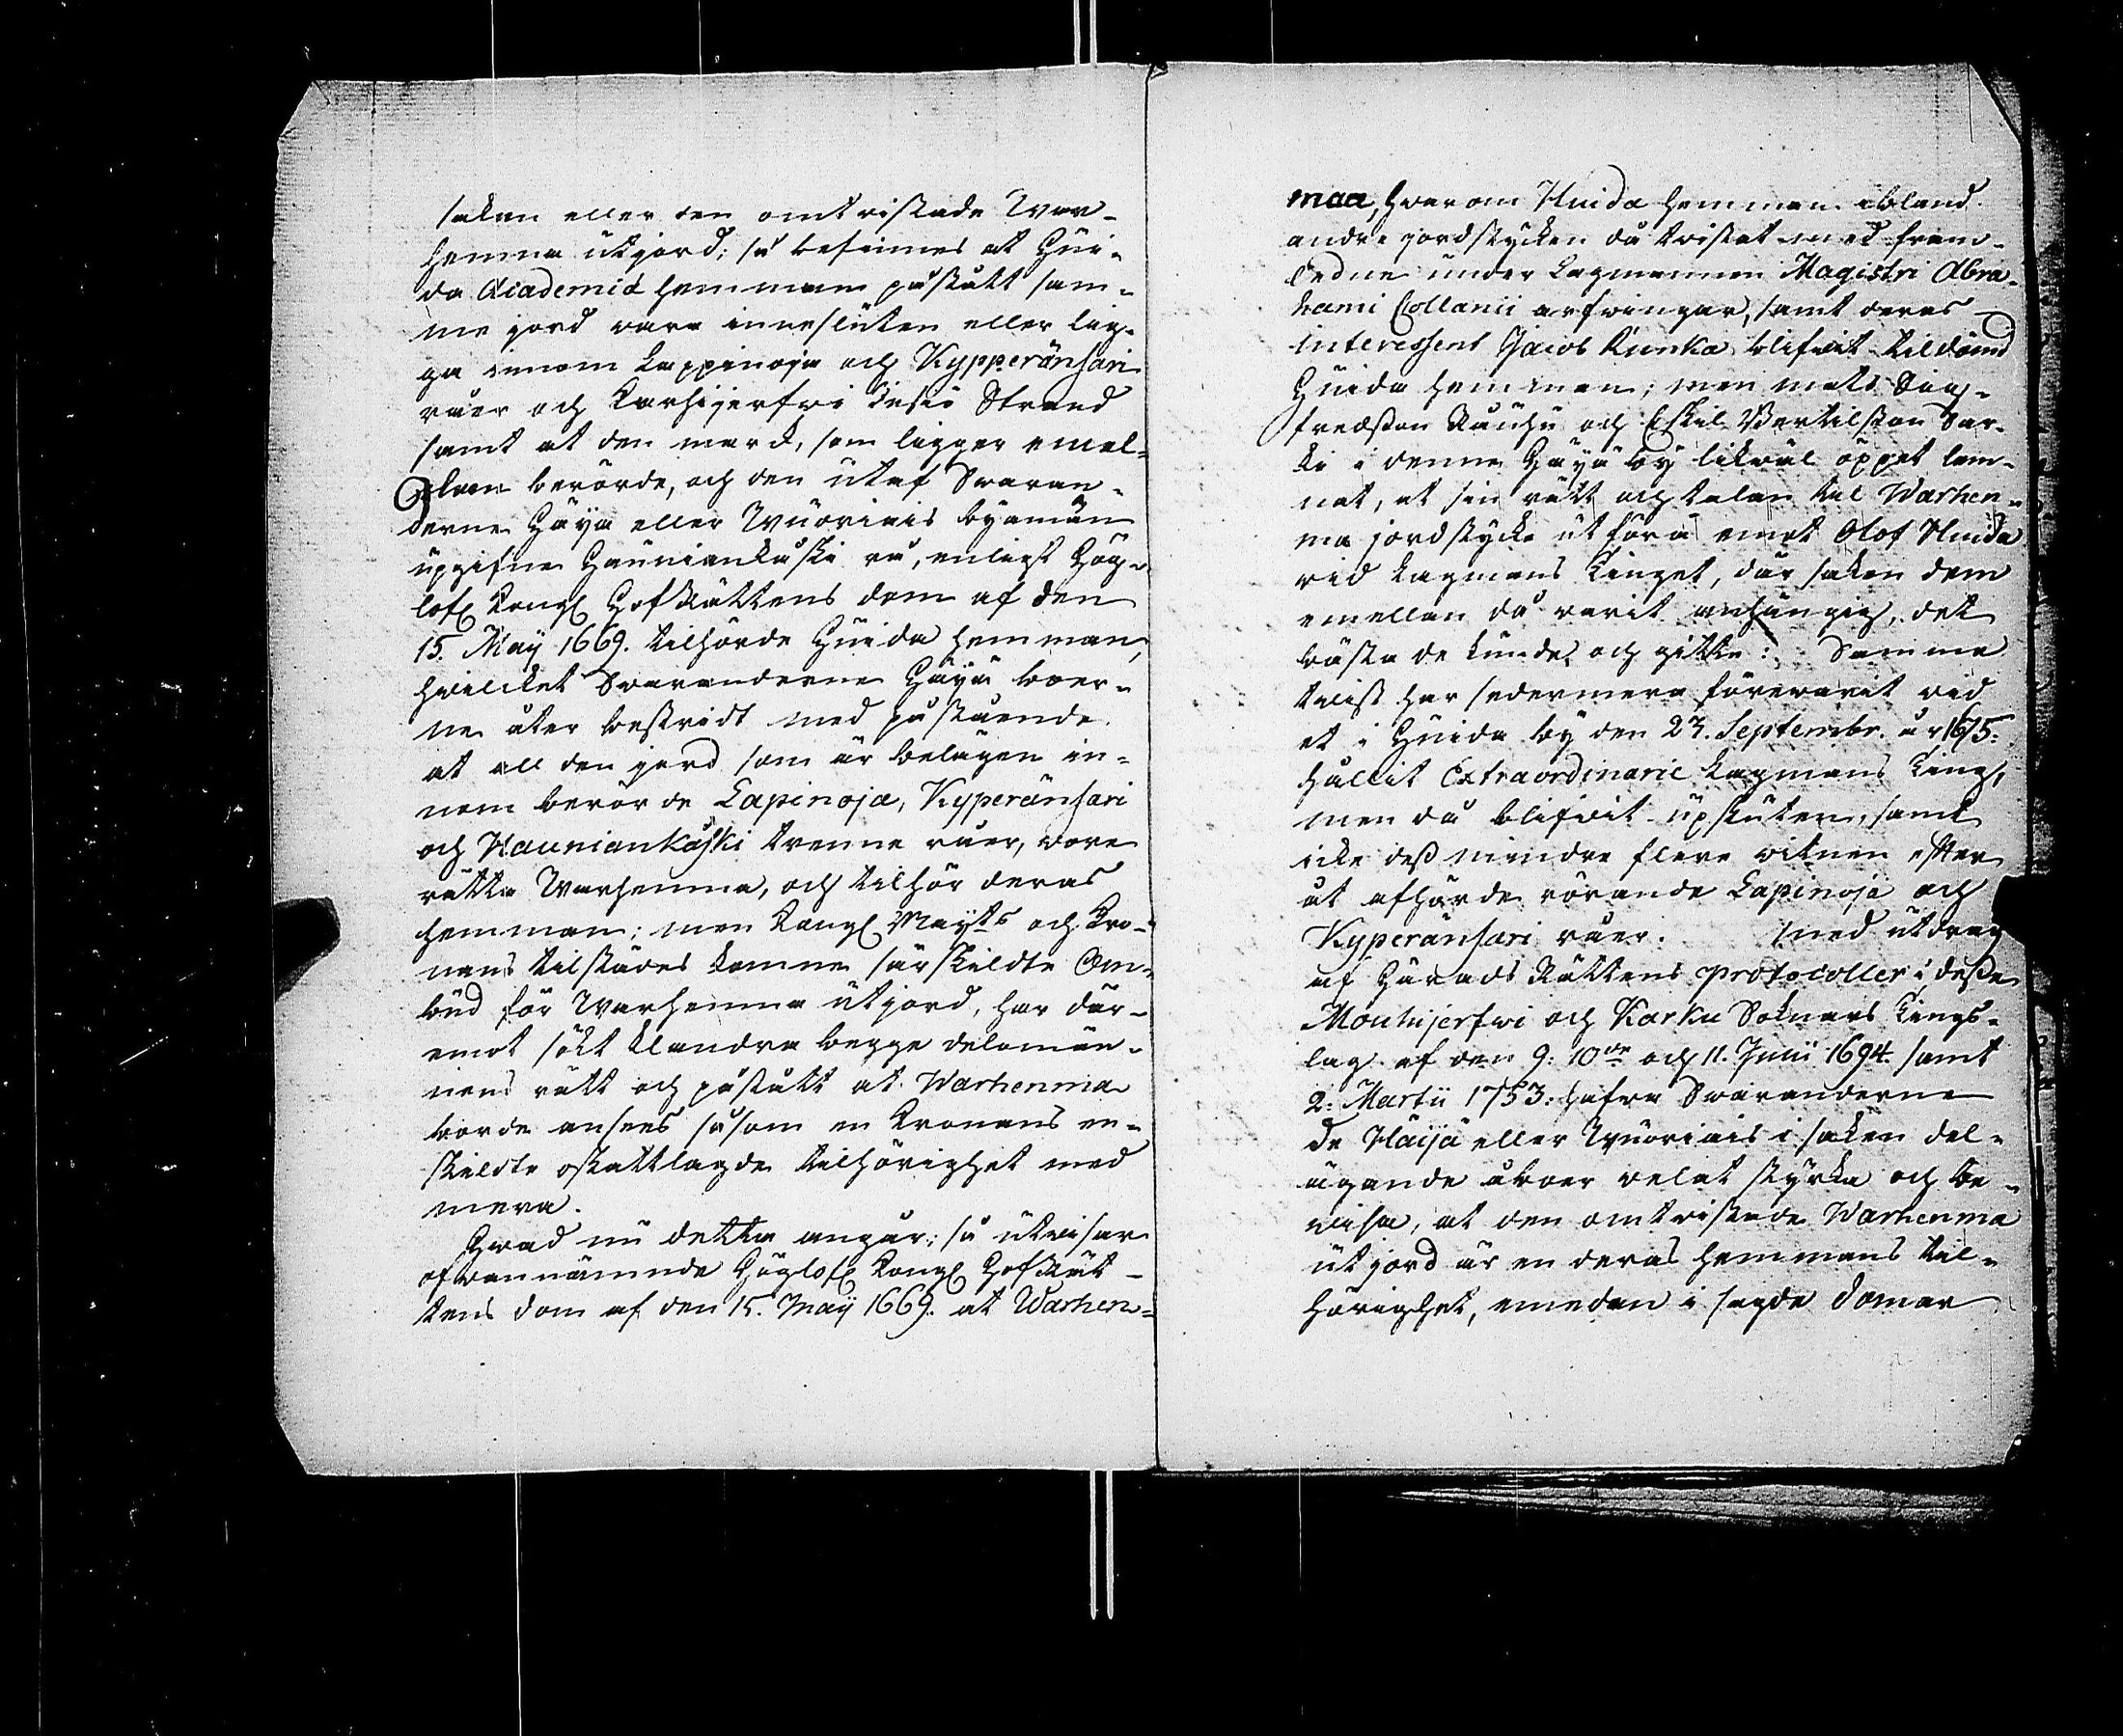 saken eller den omtvistade War-
henma utjord; så befinnes at Hui-
da Academiæ hemman påstått sam-
me jord vara innesluten eller lig-
ga innom Lappinoja och Kypperänsari
råer och Karhijerfwi Strand
samt at den mark, som ligger emel-
lan berörde, och den utaf Svaran-
derne Häyä eller Wuoriais byamän
upgifne Hauniankåski rå, enligt Hög-
lofl Kongl HofRättens dom af den
15. Maÿ 1669. tilhörde Huida hemman,
hvilcket Svaranderne Häyä boer-
ne åter bestridt med påstående
at all den jord som är belägen in-
nom berörde Lapinoja, Kyperänsari
och Hauniankåski trenne råer, vore
rätta Warhenma, och tilhör deras
hemman; men Kongl Maÿts och Kro-
nans tilstädes komne särskildte Om-
bud för Warhenma utjord, har där-
emot sökt klandra begge delomän-
nens rätt och påstått at Warhenma
borde anses såsom en Kronans en-
skildte oskattlagde tilhörighet med
mera.
Hvad nu detta angår; så utvisar
ofvannämnde Höglofl Kongl HofRät-
tens dom af den 15. Maÿ 1669. at Warhen-
maa, hvarom Huida hemman ibland
andre jordstycken då tvistat med fram-
ledne under Lagmannen Magistri Abra-
hami Collanii arfvingar, samt deras
interessent Jacob Kunka blifvit tildömd
Huida hemman; men mats Sig-
fredsson Rauhu och Eskil Bertilsson Sar-
ki i denne Häyä by likväl öppet lem-
nat, at sin rätt och talan til Warhen-
ma jordstycke utföra emot Olof Huida
vid Lagmans Tinget, där saken dem
emellan då varit anhängig, det
bästa de kunde och gitte: Samme
tvist har sedermera förevarit vid
et i Huida by den 23. Septembr. år 1675.
hållit Extraordinarie Lagmans Ting,
men då blifvit upskuten, samt
icke dess mindre flere vitnen efter
åt afhörde rörande Lapinoja och
Kyperänsari råer. med utdrag
af Härads Rättens protocoller i desse
Mouhijerfwi och Karku Soknars Tings-
lag af den 9: 10de och 11. Junii 1694. samt
2: Martii 1753: hafva Svaranderne
de Häijä eller Wuoriais i saken del-
ägande åboer velat styrka och be-
visa, at den omtvistade Warhenma
utjord är en deras hemmans til-
hörighet, emedan i sagde domar